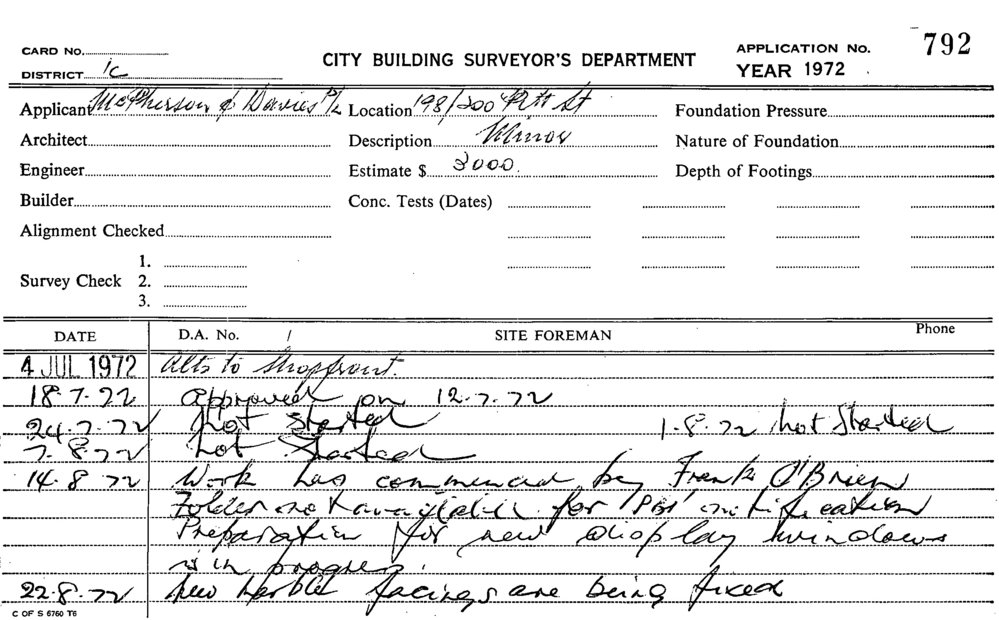 CARD No.
CITY BUILDING SURVEYOR'S DEPARTMENT
APPLICATION No. 792
DISTRICT 1c
YEAR 1972
Applicant McPherson & Davies P/L Location 198/200 Pitt St Foundation Pressure
Architect Description Minor Nature of Foundation
Engineer Estimate $ 3000. Depth of Footings
Builder Conc. Tests (Dates)
Alignment Checked
1.
Survey Check 2.
3.
DATE D.A. No. / SITE FOREMAN Phone
4 JUL 1972 Alts to Shopfront.
18.7.72 approved on 12.7.72
24.7.72 Not Started 1.8.72 Not Started
7.8.72 Not Started
14.8.72 Work has commenced by Frank O'Brien
Folder not available for notification
Preparation for new display windows
is in progress.
22.8.72 New marble facings are being fixed
C OF S 6760 T6